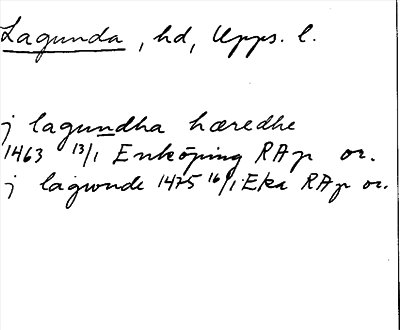 Lagunda, hd, Upps. l.
j lagundha hæredhe
1463 13/1 Enköping RAp or.
j lagwnde 1475 16/1 Eka RAp or.